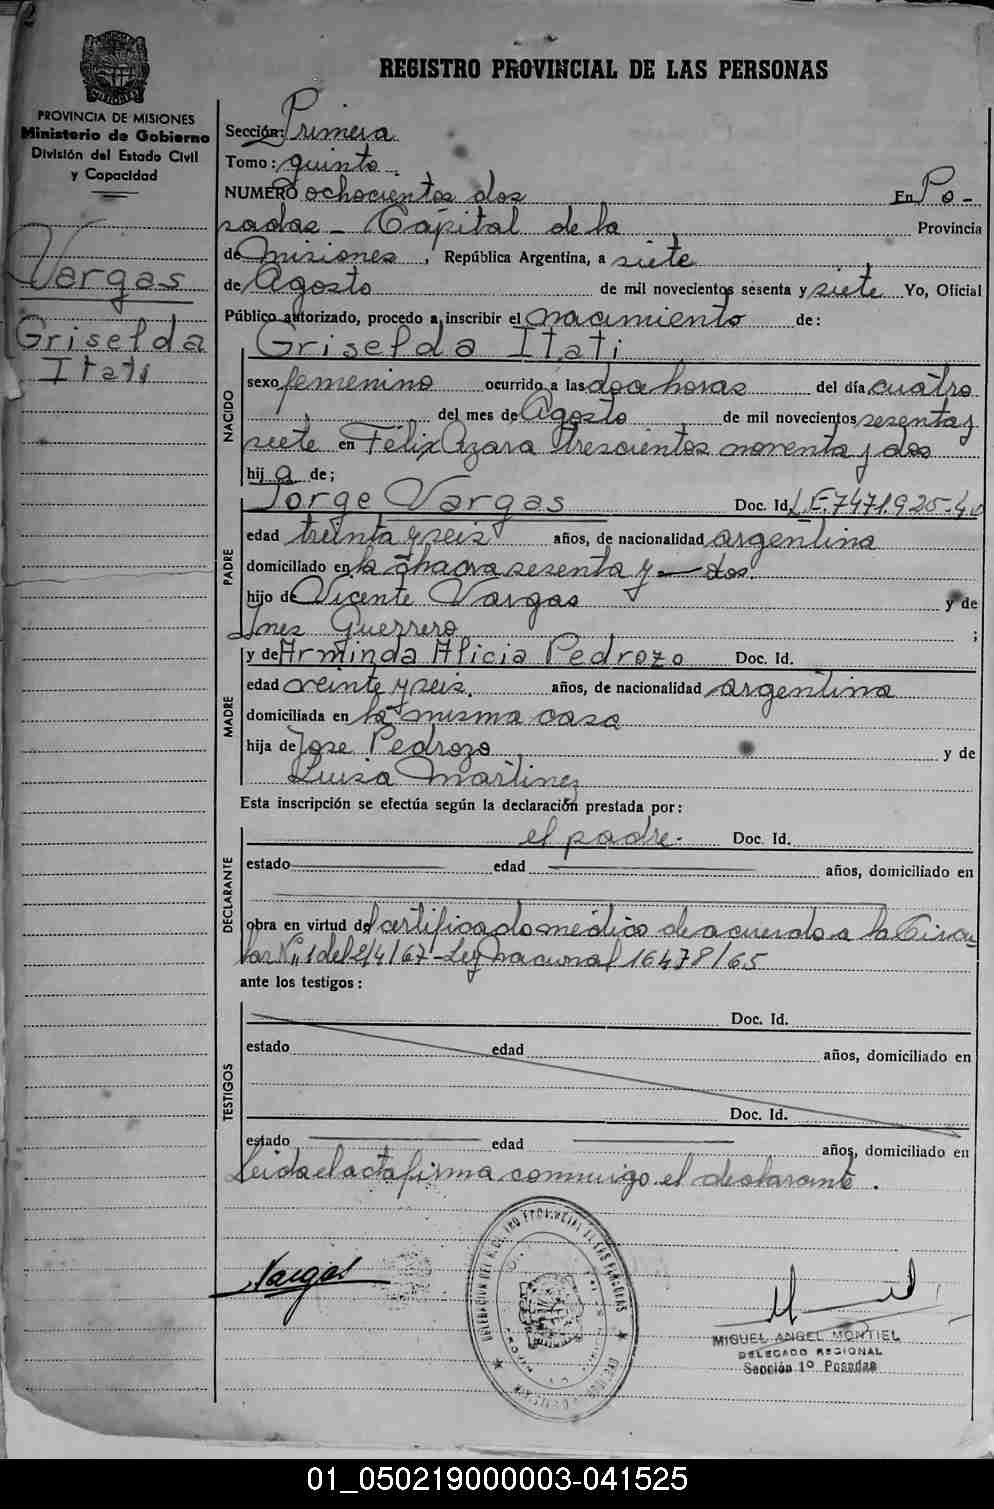 2
REGISTRO PROVINCIAL DE LAS PERSONAS
PROVINCIA DE MISIONES
Ministerio de Gobierno
División del Estado Civil
y Capacidad
Vargas
Griselda
Itati
Sección: Primera
Tomo: quinto
NUMERO ochocientos dos En Po-
sadas - Capital de la Provincia
de Misiones, República Argentina, a siete
de Agosto de mil novecientos sesenta y siete Yo, Oficial
Público autorizado, procedo a inscribir el nacimiento de:
Griselda Itati
NACIDO
sexo femenino ocurrido a las doce horas del día cuatro
del mes de Agosto de mil novecientos sesenta y
siete en Félix Azara trescientos noventa y dos
hij a de;
Jorge Vargas Doc. Id. L.E. 7.471.925-
PADRE
edad treinta y seis años, de nacionalidad argentina
domiciliado en la chacra sesenta y dos.
hijo de Vicente Vargas y de
Ines Guerrero ;
y de Arminda Alicia Pedrozo Doc. Id.
MADRE
edad veinte y seis. años, de nacionalidad argentina
domiciliada en la misma casa
hija de Jose Pedrozo y de
Luisa Martinez
Esta inscripción se efectúa según la declaración prestada por:
el padre- Doc. Id.
DECLARANTE
estado edad años, domiciliado en
obra en virtud del certificado médico de acuerdo a la Circu-
lar Nº 1 del 2/4/67-Ley Nacional 16478/65
ante los testigos:
Doc. Id.
TESTIGOS
estado edad años, domiciliado en
Doc. Id.
estado edad años, domiciliado en
Leida el acta firma conmigo el declarante.
Vargas
MIGUEL ANGEL MONTIEL
DELEGADO REGIONAL
Sección 1º Posadas
01_050219000003-041525